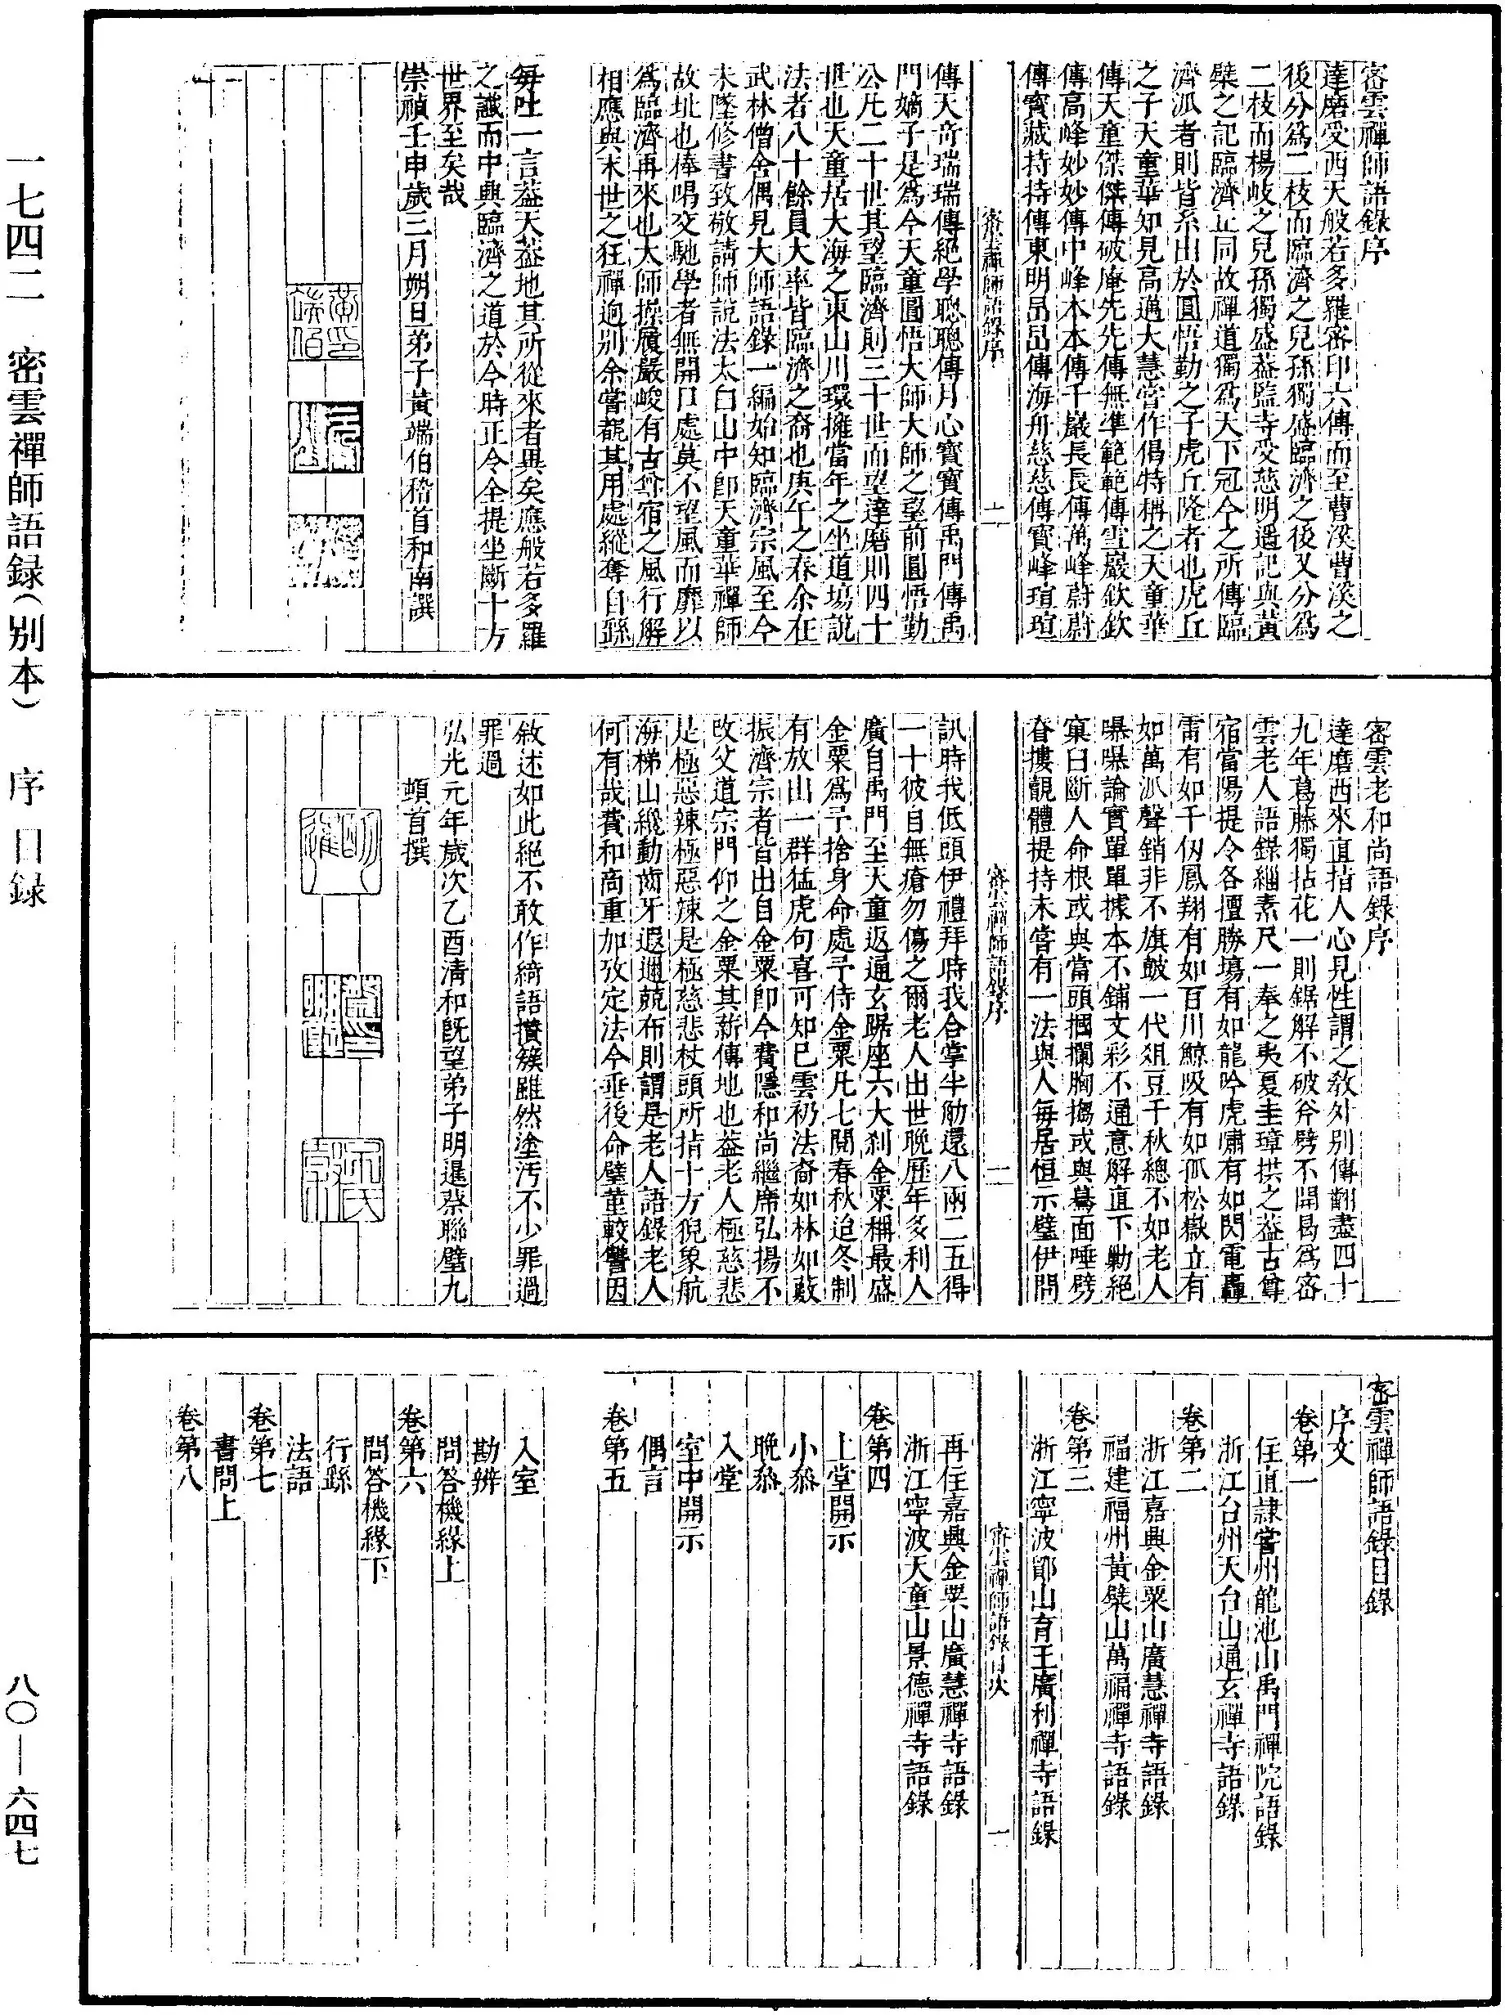 密雲禪師語錄序
達磨受西天般若多羅密印六傳而至曹溪曹溪之
後分為二枝而臨濟之兒孫獨盛臨濟之後又分為
二枝而楊岐之兒孫獨盛葢監寺受慈明遇記與黃
檗之記臨濟正同故禪道獨為天下冠今之所傳臨
濟派者則皆系出於圓悟勤之子虎丘隆者也虎丘
之子天童華知見高邁大慧嘗作偈特稱之天童華
傳天童傑傑傳破庵先先傳無準範範傳雪巖欽欽
傳高峰妙妙傳中峰本本傳千巖長長傳萬峰蔚蔚
傳寶藏持持傳東明旵旵傳海舟慈慈傳寶峰瑄瑄
密雲禪師語錄序 一
傳天奇瑞瑞傳絕學聰聰傳月心寶寶傳禹門傳禹
門嫡子是為今天童圓悟大師大師之望前圓悟勤
公凡二十世其望臨濟則三十世而望達磨則四十
世也天童居大海之東山川環擁當年之坐道塲說
法者八十餘員大率皆臨濟之裔也庚午之春余在
武林僧舍偶見大師語錄一編始知臨濟宗風至今
未墜修書致敬請師說法太白山中卽天童華禪師
故址也俸唱交馳學者無開口處莫不望風而靡以
為臨濟再來也大師操履嚴峻有古尊宿之風行解
相應與末世之狂禪迥別余嘗覩其用處縱奪自繇
每吐一言葢天葢地其所從來者異矣應般若多羅
之讖而中興臨濟之道於今時正令全提坐斷十方
世界至矣哉
崇禎壬申歲三月朔日弟子黃端伯稽首和南譔
密雲老和尚語錄序
達磨西來直指人心見性謂之敎外別傳翻盡四十
九年葛藤獨拈花一則鋸解不破斧劈不開曷為密
雲老人語錄緇素尺一奉之夷夏圭璋拱之葢古尊
宿當陽提令各擅勝塲有如龍吟虎嘯有如閃電轟
雷有如千仭鳳翔有如百川鯨吸有如孤松嶽立有
如萬派聲銷非不旗皷一代俎豆千秋總不如老人
㬥㬥論實單單據本不鋪文彩不通意解直下勦絕
窠臼斷人命根或與當頭摑攔胸搊或與驀面唾劈
脊摟覿體提持未嘗有一法與人每居恒示璧伊問
密雲禪師語錄序 一
訊時我低頭伊禮拜時我合掌半觔還八兩二五得
一十彼自無瘡勿傷之爾老人出世晚歷年多利人
廣自禹門至天童返通玄踞座六大刹金粟稱最盛
金粟為予捨身命處予侍金粟凡七閱春秋迨冬制
有放出一群猛虎句喜可知已雲礽法裔如林如藪
振濟宗者皆出自金粟卽今費隱和尚繼席弘揚不
改父道宗門仰之金粟其薪傳地也葢老人極慈悲
是極惡辣極惡辣是極慈悲杖頭所指十方猊象航
海梯山纔動齒牙遐邇兢布則謂是老人語錄老人
何有哉費和尚重加攷定法今垂後命璧董較讐因
敘述如此絕不敢作綺語攢簇雖然塗汚不少罪過
罪過
弘光元年歲次乙酉淸和旣望弟子明暹蔡聯璧九
頓首撰
密雲禪師語錄目錄
序文
卷第一
住直隷甞州龍池山禹門禪院語錄
浙江台州天台山通玄禪寺語錄
卷第二
浙江嘉興金粟山廣慧禪寺語錄
福建福州黃檗山萬福禪寺語錄
卷第三
浙江寧波鄮山育王廣利禪寺語錄
密雲禪師語錄目次 一
再住嘉興金粟山廣慧禪寺語錄
浙江寧波天童山景德禪寺語錄
卷第四
上堂開示
小叅
晚叅
入堂
室中開示
偶言
卷第五
入室
勘辨
問答機緣上
卷第六
問答機緣下
行繇
法語
卷第七
書問上
卷第八
一七四二 密雲禪師語錄(別本) 序 目錄
八〇—六四七